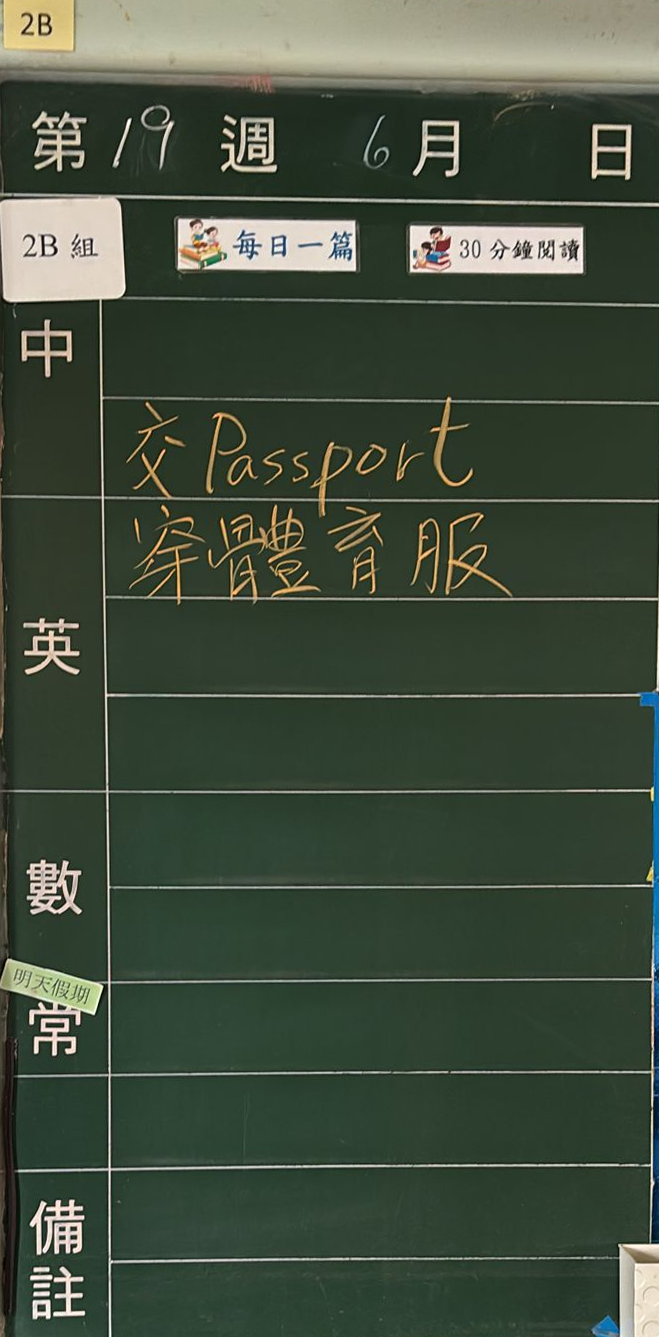 2B
第19週 6月 日
2B 組
每日一篇
30分鐘閱讀
中
交Passport
穿體育服
英
數
明天假期
常
備註